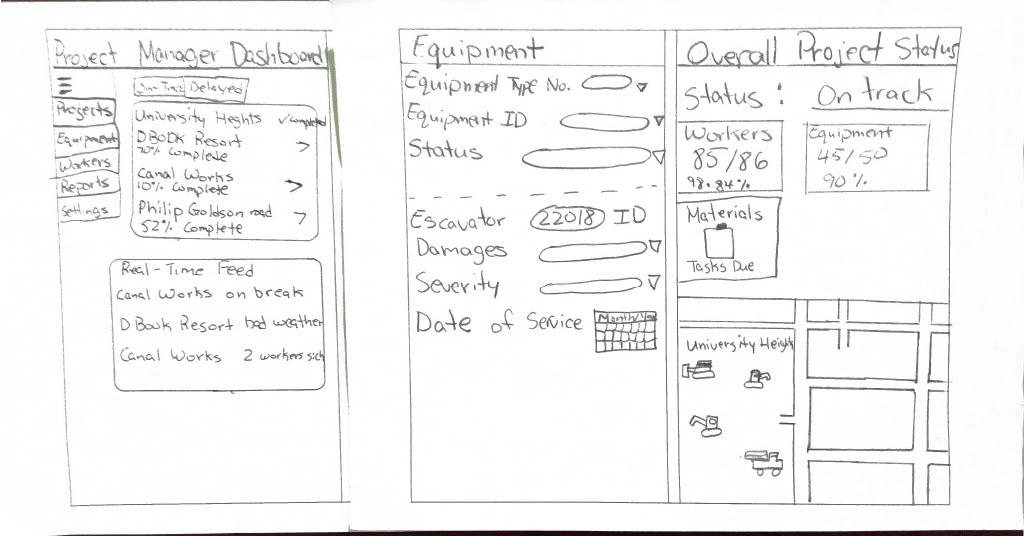 Project Manager Dashboard
On-Track Delayed
Projects
Equipment
Workers
Reports
Settings
University Heghts ✓completed
DBook Resort >
70% Complete
Canal Works >
10% Complete
Philip Goldson road >
52% Complete
Real-Time Feed
Canal Works on break
D Book Resort bad weather
Canal Works 2 workers sick
Equipment
Equipment Type No.
Equipment ID
Status
Escavator 22018 ID
Damages
Severity
Date of Service Month/Year
Overall Project Status
Status: On track
Workers
85/86
98.84%
Equipment
45/50
90%
Materials
Tasks Due
University Heights